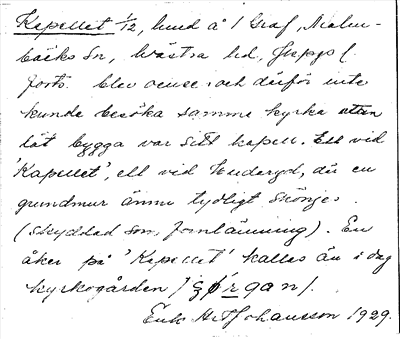 Kapellet 1/12, hmd å 1 Graf, Malm-
bäcks sn, Västra hd,
forts. blev ovense och därför inte
kunde besöka samma kyrka utan
lät bygga var sitt kapell. Ett vid
'Kapellet', ett vid där en
grundmur ännu tydligt skönjes
(skyddad som fornlämning). En
åker på 'Kapellet' kallas än i dag
kyrkogården
Erik Johansson 1929.